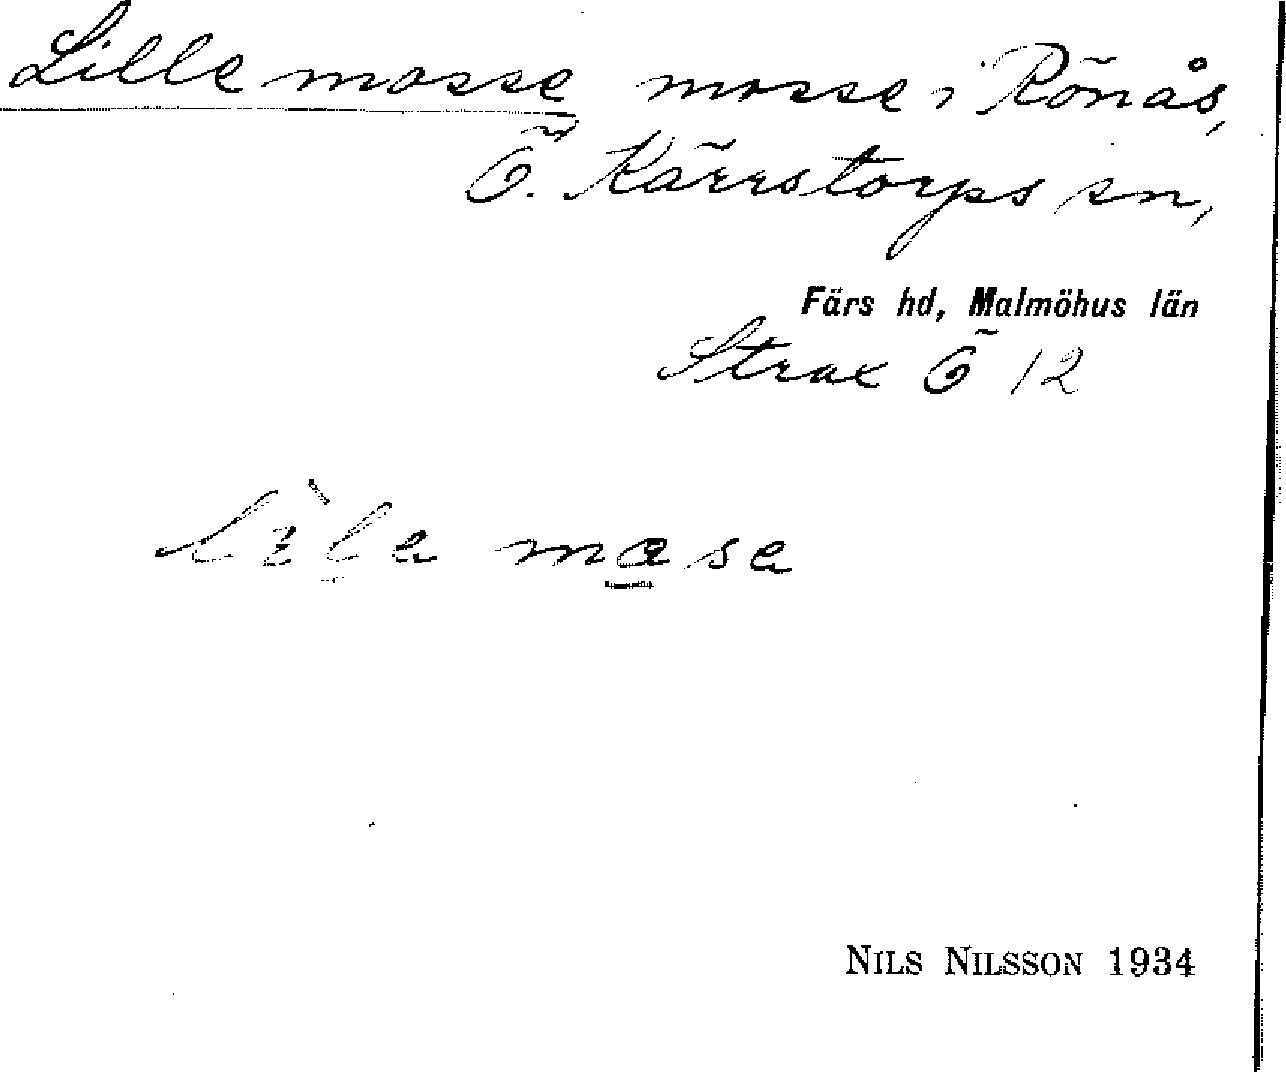 Lille mosse mosse i Rönås,
Ö. Kärrstorps sn,
Färs hd, Malmöhus län
Strax Ö 12
mosa
NILS NILSSON 1934